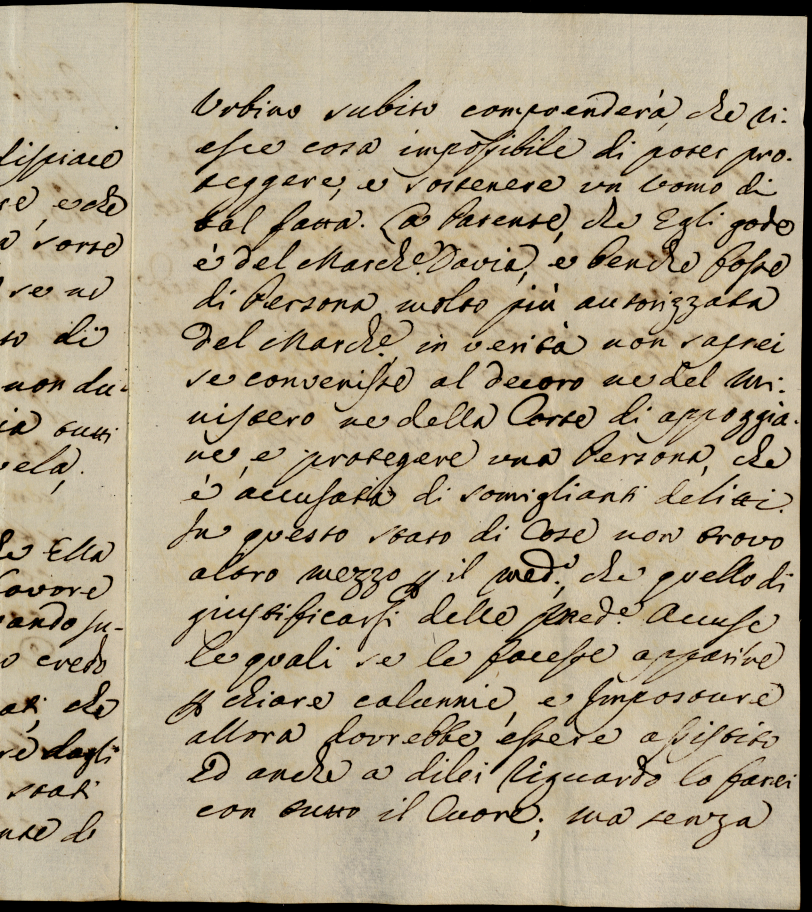 dispiace
re, e che
a sorte
se ne
to di
non du-
ia tutti
vela,
he Ella
favore
ando su-
o credo
ati, che
re dagli
stati
nte di
Urbino subito comprenderà, che ri-
esce cosa impossibile di poter pro-
teggere, e sostenere un Uomo di
tal fatta. La Patente, che Egli gode
è del March.e Davia, e benche fosse
di Persona molto più autorizzata
del March.e, in verità non saprei
se convenisse al decoro ne del Mi-
nistero ne della Corte di appoggia-
re, e protegere una Persona, che
è accusata di somiglianti delitti.
In questo stato di Cose non trovo
altro mezzo p il med.o, che quello di
giustificarsi delle pred.e Accuse
le quali se le facesse apparire
p chiare calunnie, e Imposture
allora dovrebbe essere assistito
Ed anche a dilei riguardo lo farei
con tutto il Cuore; ma senza